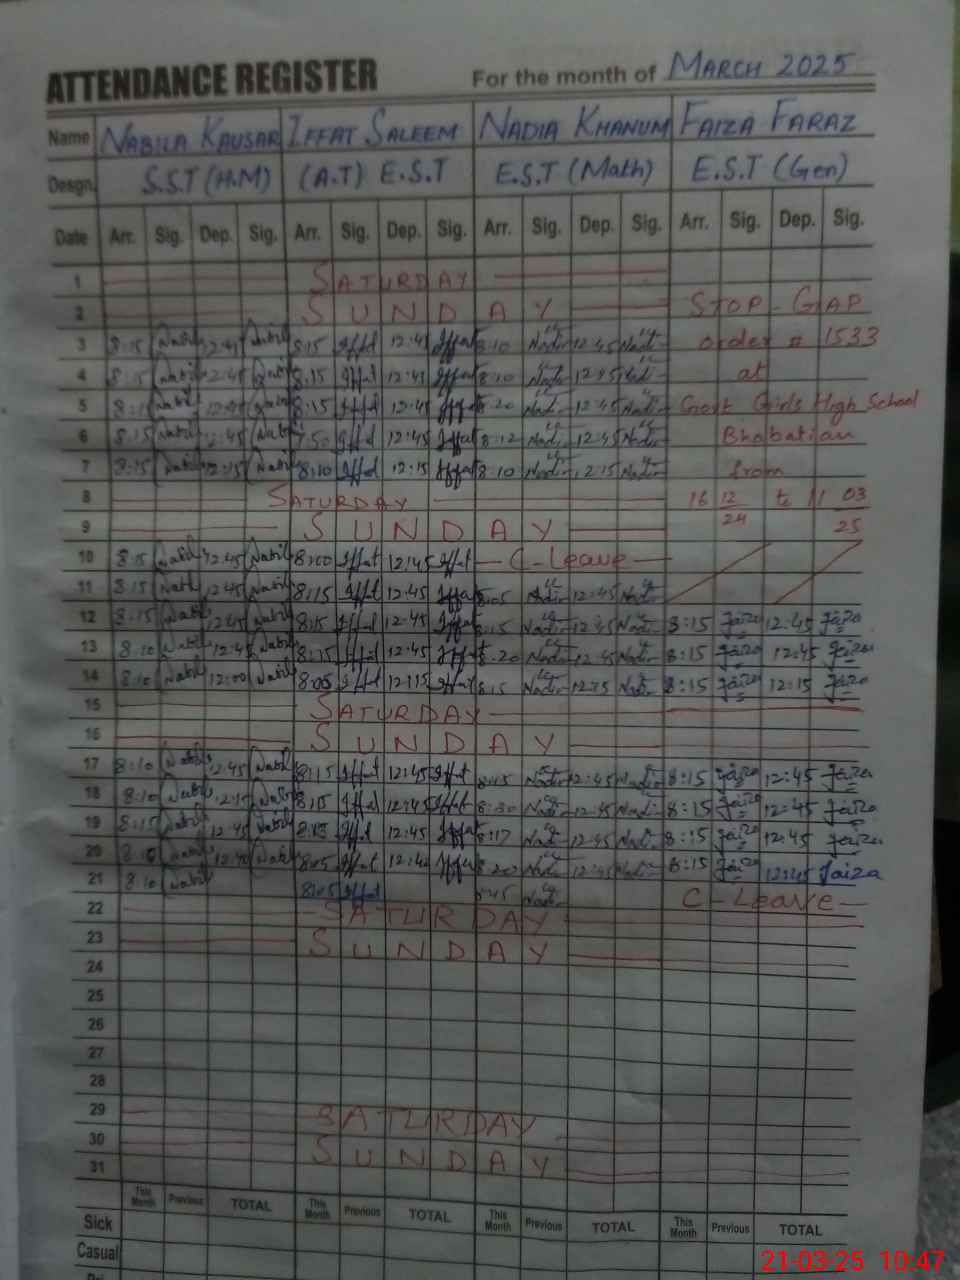 ATTENDANCE REGISTER For the month of MARCH 2025
Name NABILA KAUSAR IFFAT SALEEM NADIA KHANUM FAIZA FARAZ
Desgn. S.S.T (H.M) (A.T) E.S.T E.S.T (Math) E.S.T (Gen)
Date Arr. Sig. Dep. Sig. Arr. Sig. Dep. Sig. Arr. Sig. Dep. Sig. Arr. Sig. Dep. Sig.
1 SATURDAY
2 SUNDAY STOP-GAP
3 8:15 Nabil 12:45 Nabil 8:15 Iffat 12:45 Iffat 8:10 Nadi 12:45 Nadi order # 1533
4 8:15 Nabil 12:45 Nabil 8:15 Iffat 12:45 Iffat 8:10 Nadi 12:45 Nadi at
5 8:15 Nabil 12:45 Nabil 8:15 Iffat 12:45 Iffat 8:20 Nadi 12:45 Nadi Govt Girls High School
6 8:15 Nabil 12:45 Nabil 7:50 Iffat 12:45 Iffat 8:12 Nadi 12:45 Nadi Bhabatian
7 8:15 Nabil 12:15 Nabil 8:10 Iffat 12:15 Iffat 8:10 Nadi 12:15 Nadi from
8 SATURDAY 16 12/24 to 11 03/25
9 SUNDAY
10 8:15 Nabil 12:45 Nabil 8:00 Iffat 12:45 Iffat C-Leave
11 8:15 Nabil 12:45 Nabil 8:15 Iffat 12:45 Iffat 8:05 Nadi 12:45 Nadi
12 8:15 Nabil 12:45 Nabil 8:15 Iffat 12:45 Iffat 8:15 Nadi 12:45 Nadi 8:15 Faiza 12:45 Faiza
13 8:10 Nabil 12:45 Nabil 8:15 Iffat 12:45 Iffat 8:20 Nadi 12:45 Nadi 8:15 Faiza 12:45 Faiza
14 8:10 Nabil 12:00 Nabil 8:05 Iffat 12:15 Iffat 8:15 Nadi 12:15 Nadi 8:15 Faiza 12:15 Faiza
15 SATURDAY
16 SUNDAY
17 8:10 Nabil 12:45 Nabil 8:15 Iffat 12:45 Iffat 8:15 Nadi 12:45 Nadi 8:15 Faiza 12:45 Faiza
18 8:10 Nabil Nabil 8:15 Iffat 12:45 Iffat 8:30 Nadi 12:45 Nadi 8:15 Faiza 12:45 Faiza
19 8:15 Nabil 12:45 Nabil 8:15 Iffat 12:45 Iffat 8:17 Nadi 12:45 Nadi 8:15 Faiza 12:45 Faiza
20 Nabil Nabil 8:05 Iffat Iffat 8:20 Nadi 12:45 Nadi 8:15 Faiza 12:45 Faiza
21 8:10 Nabil 8:05 Iffat Nadi C-Leave
22 SATURDAY
23 SUNDAY
24
25
26
27
28
29 SATURDAY
30 SUNDAY
31
This Month Previous TOTAL This Month Previous TOTAL This Month Previous TOTAL This Month Previous TOTAL
Sick
Casual
21-03-25 10:47